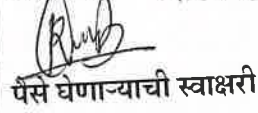 पैसे घेणाऱ्याची स्वाक्षरी